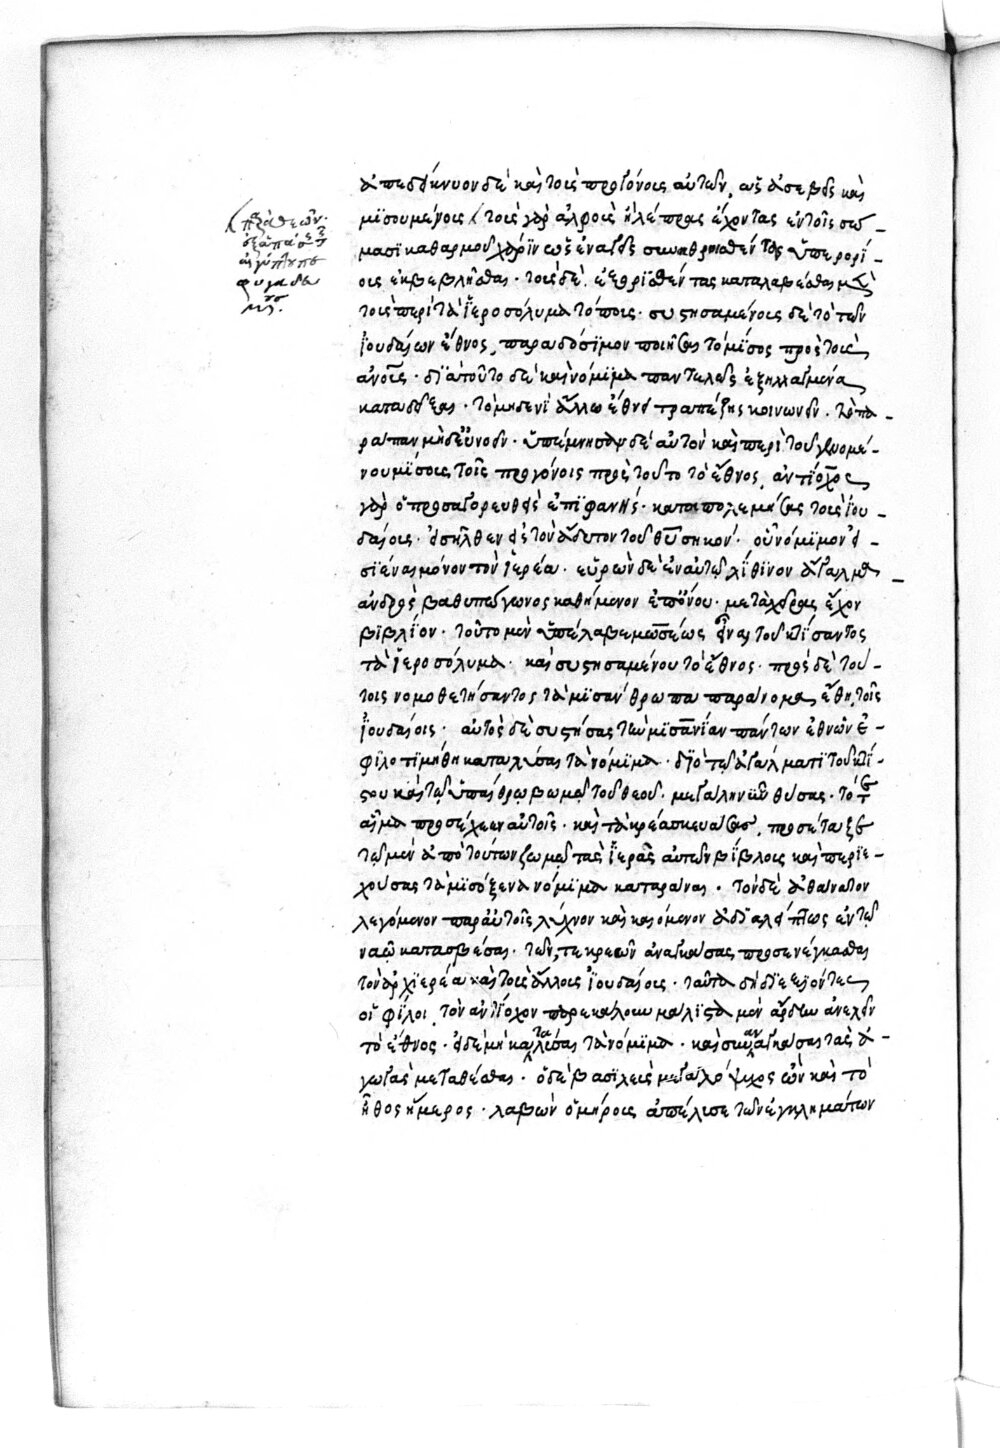 ὑπὸ τῶν θεῶν.
ἐξ ἁπάσης τῆς
αἰγύπτου πε
φυγαδευ
μένους.
ἀπεδείκνυον δὲ καὶ τοὺς προγόνους αὐτῶν, ὡς ἀσεβεῖς καὶ
μισουμένους τοὺς γὰρ ἀλφοὺς ἢ λέπρας ἔχοντας ἐν τοῖς σώ-
μασι καθαρμοῦ χάριν ὡς ἐναγεῖς συναθροισθέντας ὑπερορί-
ους ἐκβεβλῆσθαι. τοὺς δὲ ἐξορισθέντας καταλαβέσθαι μὲν
τοὺς περὶ τὰ ἱεροσόλυμα τόπους. συστησαμένους δὲ τὸ τῶν
ἰουδαίων ἔθνος, παραδόσιμον ποιῆσαι τὸ μῖσος πρὸς τοὺς
ἀνους. διὰ τοῦτο δὲ καὶ νόμιμα παντελῶς ἐξηλλαγμένα
καταδεῖξαι. τὸ μηδενὶ ἄλλω ἔθνει τραπέζης κοινωνεῖν. τὸ πα-
ράπαν μηδ' εὐνοεῖν. ὑπέμνησαν δὲ αὐτὸν καὶ περὶ τοῦ γενομέ-
νου μίσους τοῖς προγόνοις πρὸς τοῦτο τὸ ἔθνος, ἀντίοχος
γὰρ ὁ προσαγορευθεὶς ἐπιφανὴς. καταπολεμήσας τοὺς ἰου-
δαίους. εἰσῆλθεν εἰς τὸν ἄδυτον τοῦ θεοῦ σηκόν. οὗ νόμιμον εἰ-
σιέναι μόνον τὸν ἱερέα. εὑρὼν δὲ ἐν αὐτῷ λίθινον ἄγαλμα
ἀνδρὸς βαθυπώγωνος καθήμενον ἐπ' ὄνου. μετὰ χεῖρας ἔχον
βιβλίον. τοῦτο μὲν ὑπέλαβε μωσέως εἶναι τοῦ κτίσαντος
τὰ ἱεροσόλυμα. καὶ συστησαμένου τὸ ἔθνος. πρὸς δὲ τού-
τοις νομοθετήσαντος τὰ μισάνθρωπα παράνομα ἔθη τοῖς
ἰουδαίοις. αὐτὸς δὲ στυγήσας τὴν μισανίαν πάντων ἐθνῶν ἐ-
φιλοτιμήθη καταλύσαι τὰ νόμιμα. διὸ τῷ ἀγάλματι τοῦ κτί-
στου καὶ τῷ ὑπαίθρῳ βωμῷ τοῦ θεοῦ. μεγάλην ὗν θύσας. τό τε
αἷμα προσέχεεν αὐτοῖς. καὶ τὰ κρέα σκευάσας, προσέταξε
τῷ μὲν ἀπὸ τούτων ζωμῷ τὰς ἱερὰς αὐτῶν βίβλους καὶ περιε-
χούσας τὰ μισόξενα νόμιμα καταρᾶναι. τὸν δὲ ἀθάνατον
λεγόμενον παρ' αὐτοῖς λύχνον καὶ καιόμενον ἀδιαλείπτως ἐν τῷ
ναῷ κατασβέσαι. τῶν τε κρεῶν ἀναγκάσαι προσενέγκασθαι
τὸν ἀρχιερέα καὶ τοὺς ἄλλους ἰουδαίους. ταῦτα δὴ διεξιόντες
οἱ φίλοι τὸν ἀντίοχον παρεκάλουν μάλιστα μὲν ἄρδην ἀνελεῖν
τὸ ἔθνος. εἰ δὲ μὴ καταλῦσαι τὰ νόμιμα. καὶ συναναγκάσαι τὰς ἀ-
γωγὰς μεταθέσθαι. ὁ δὲ βασιλεὺς μεγαλόψυχος ὢν καὶ τὸ
ἦθος ἥμερος. λαβὼν ὁμήρους ἀπέλυσε τῶν ἐγκλημάτων